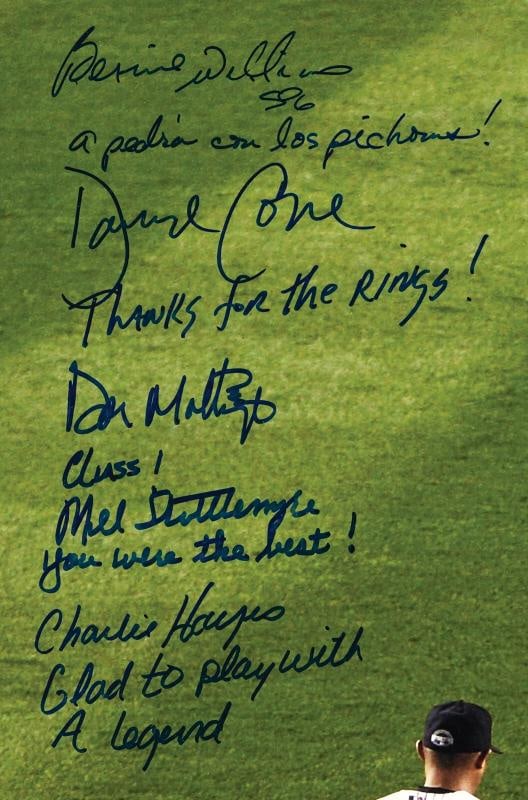 Bernie Williams
a pedria con los pichones!
David Cone
Thanks for the Rings!
Don Mattingly
Class!
Mel Stottlemyre
You were the best!
Charlie Hayes
Glad to play with
A Legend